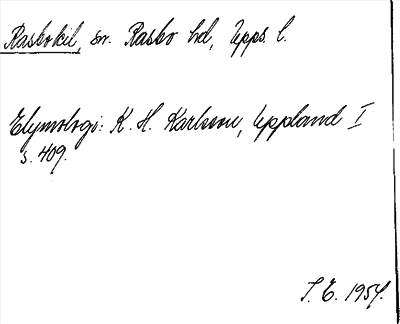 Rasbokil, sn. Rasbo hd, Upps. l.
Etymologi: K. H. Karlsson, Uppland I
s. 409.
T. E. 1954.